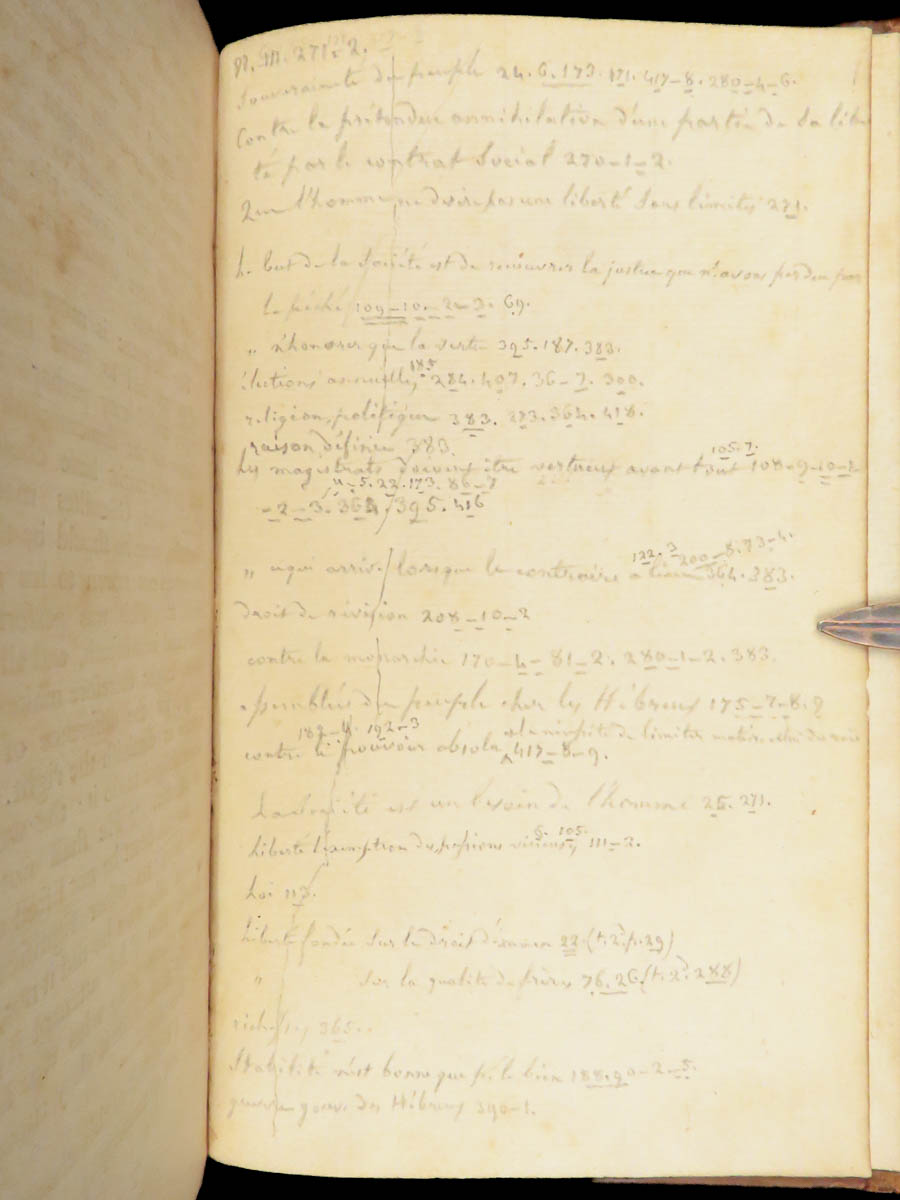 271-2.
Souveraineté du peuple 24. 6. 173. 171. 417-8. 280-4-6.
Contre la prétendue annihilation d'une partie de la liber
té par le contrat Social 270-1-2.
Que l'homme ne desire pas une liberté sans limites 271.
Le but de la Société est de recouvrer la justice que n. avons perdue par
le péché 109-10-2-3. 69.
„ n'honorer que la vertu 395. 187. 383.
185
élections annuelles, 284. 407. 36-7. 300.
religion, politique 383. 273. 364. 418.
raison définie 383.
105. 7.
Les magistrats doivent être vertueux avant tout 108-9-10-1-
4-5. 22. 173. 86-7
-2-3. 364. 395. 416
122. 3 200-8. 73-4.
„ ce qui arrive lorsque le contraire a lieu 364. 383.
droit de révision 208-10-2
contre la monarchie 170-4-81-2. 280-1-2. 383.
assemblées du peuple chez les Hébreux 175-7-8-9
182-4. 192-3 la nécessité de limiter
contre le pouvoir absolu 417-8-9.
La Société est un besoin de l'homme 25. 271.
6. 105.
liberté l'exemption des passions vicieuses, 111-2.
Loi 113.
liberté fondée sur le droit d'examen 22. (t. 2d. p. 29)
„ sur la qualité de frères 76. 26. (t. 2d. 288)
richesses 365.
Stabilité n'est bonne que p. le bien 188. 90-2-5.
gouv. des Hébreux 390-1.